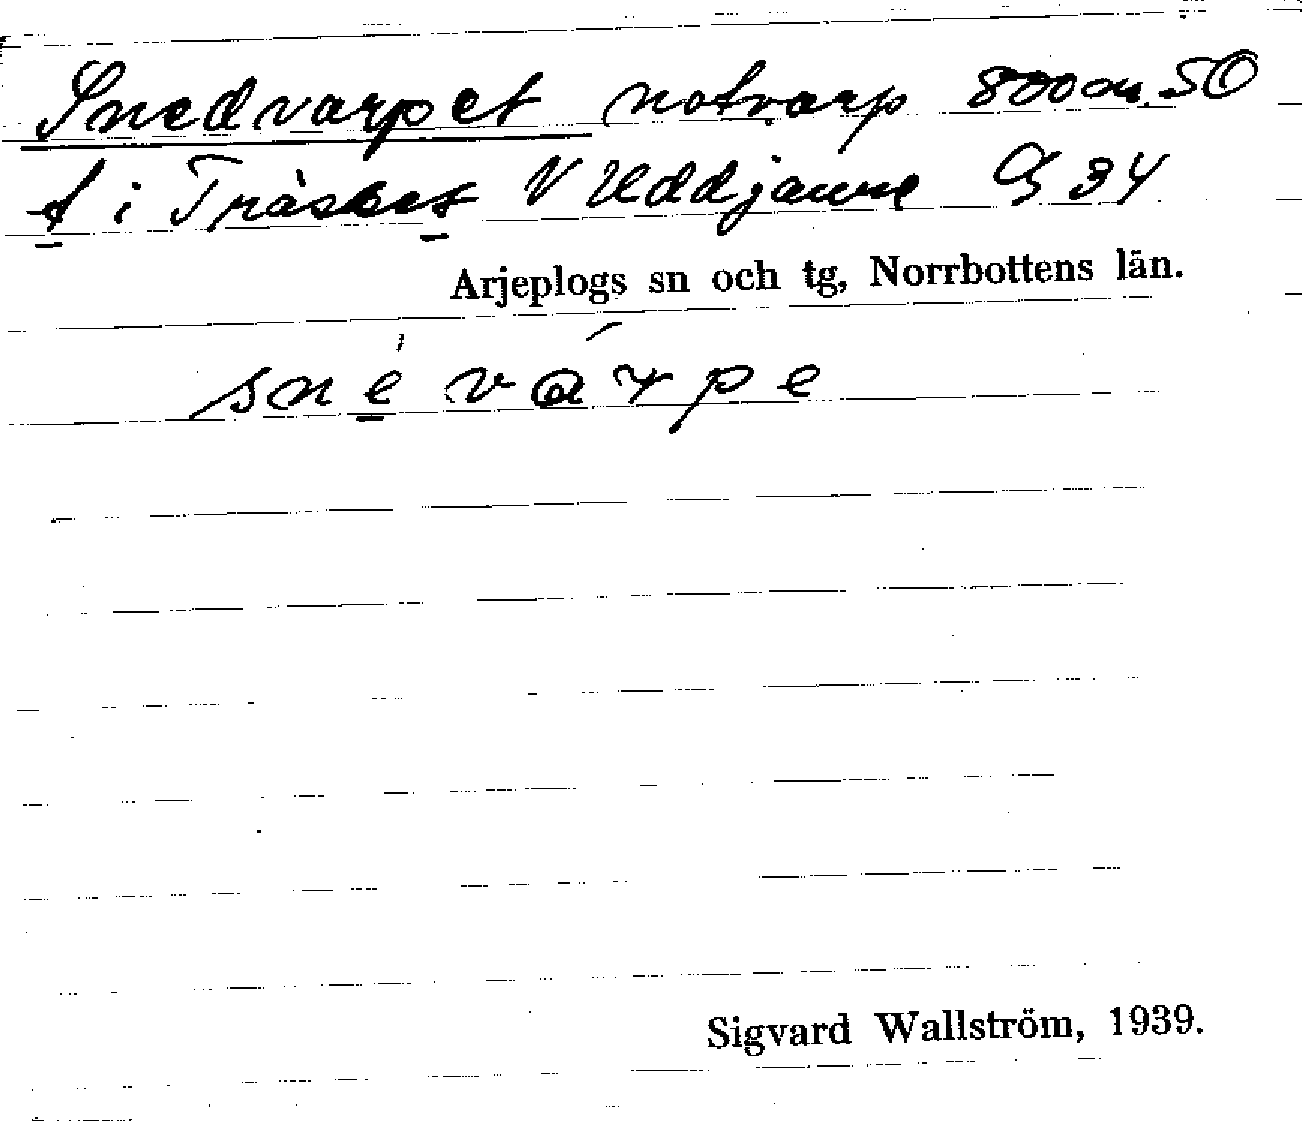 Snedvarpet notvarp 800 m SO
f i Träsket V Uddjaure G 34
Arjeplogs sn och tg, Norrbottens län.
snévárpe
Sigvard Wallström, 1939.